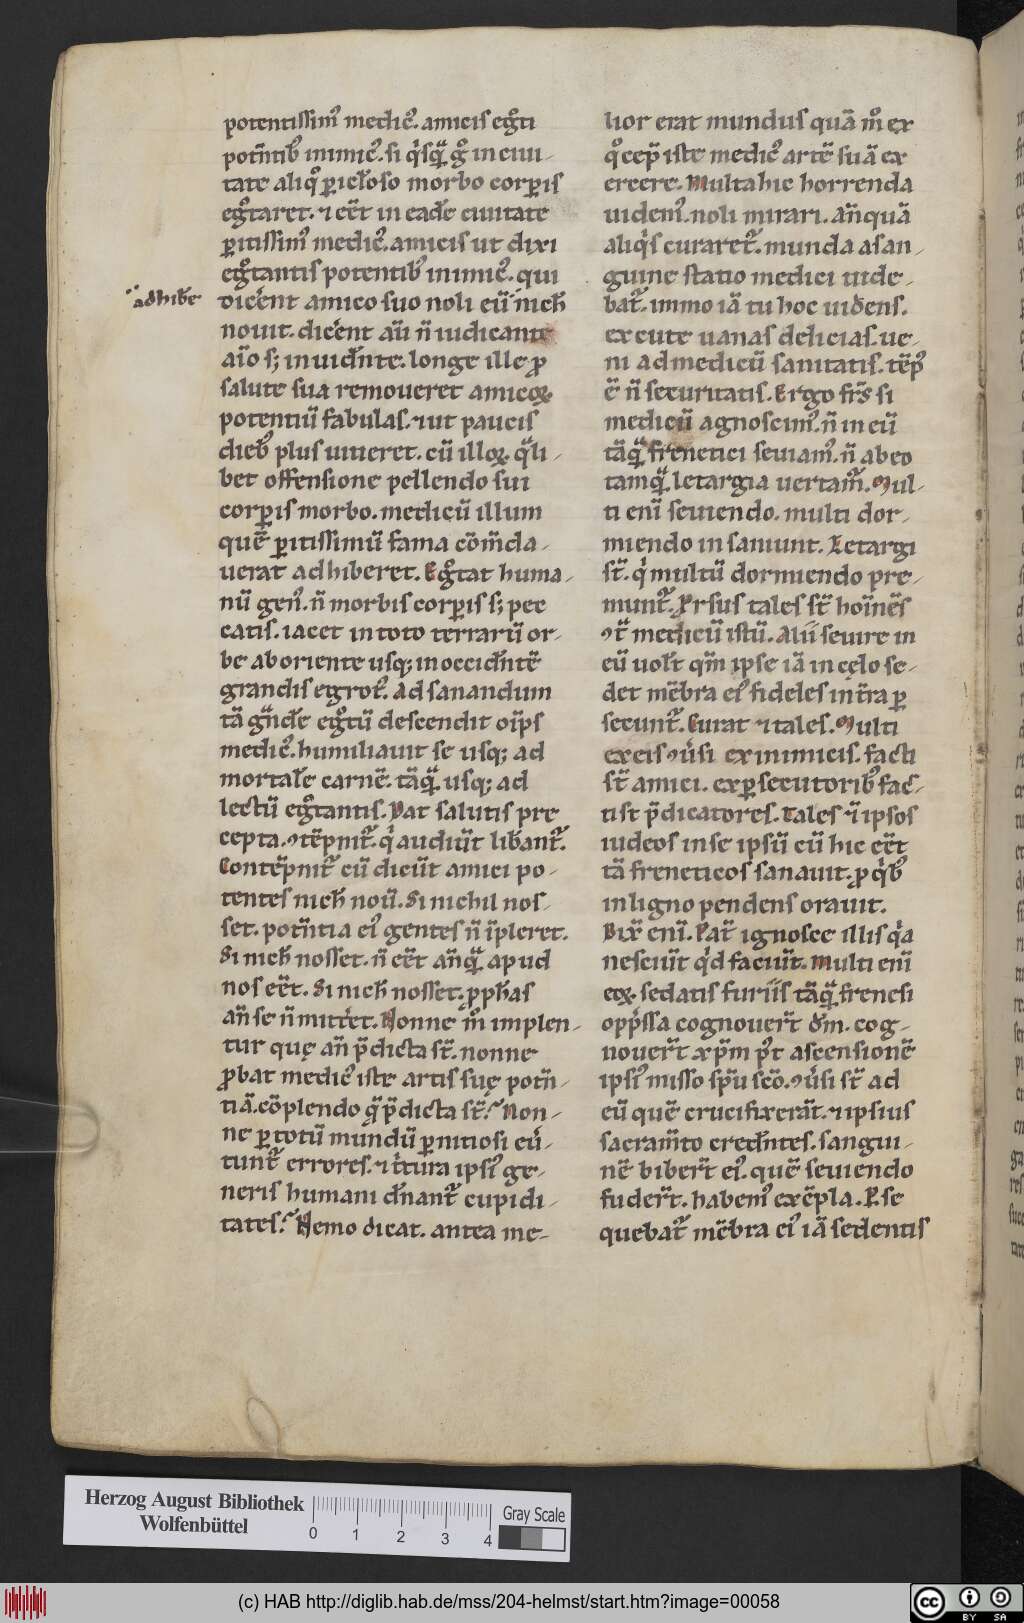 potentissim᷒ medic᷒. amicis egͦti
potn̄tib᷒ inimic᷒. si qͥsqͣ̄ gͦ in ciui-
tate aliqͦ ꝑicl̄oso morbo corꝑis
egͦtaret. ⁊ eēt in eadē ciuitate
ꝑitissim᷒ medic᷒. amicis ut dixi
egͦtantis potentib᷒ inimic᷒. qui
adhibēe
dicerent amico suo noli eū nich̄
nouit. dicerent aū n̄ iudicante
aīo s; inuidn̄te. longe ille ꝓ
salute sua remoueret amicoꝝ
potentiū fabulas. ⁊ ut paucis
dieb᷒ plus uiueret. cū illoꝝ qͣli-
bet offensione pellendo sui
corꝑis morbo. medicū illum
quē ꝑitissimū fama cōm̄da-
uerat adhiberet. Egͦtat huma-
nū gen᷒. n̄ morbis corꝑis s; pec
catis. iacet in toto terrarū or-
be ab oriente usq; in occidn̄tē
grandis egrot᷒. Ad sanandum
tā gͣndē egͦtū descendit oīps
medic᷒. humiliauit se usq; ad
mortalē carnē. tāqͣ̄ usq; ad
lectū egͦtantis. Dat salutis pre
cepta. ꝯtēpnit᷑. qͥ audiūt lib̄ant᷑.
Contēpnit᷑ cū dicūt amici po-
tentes nich̄ nouͥ. Si nichil nos-
set. potn̄tia ei᷒ gentes n̄ īpleret.
Si nich̄ nosset. n̄ eēt an̄qͣ̄ apud
nos eēt. Si nich̄ nosset. ꝓph̄as
an̄ se n̄ mittͤet. Nonne m̊ implen-
tur quę an̄ p̄dicta st̄. nonne
ꝓbat medic᷒ iste artis suę potn̄-
tiā. cōplendo qͣ p̄dicta st̄? Non-
ne ꝑ totū mundū ꝑnitiosi euͥ-
tunt᷑ errores. ⁊ tͥtura ipsi᷒ ge-
neris humani dn̄ant᷑ cupidi-
tates? Nemo dicat. antea me-
lior erat mundus quā m̊ ex
qͦ cep̄ iste medic᷒ artē suā ex
ercere. Multa hic horrenda
uidem᷒. noli mirari. An̄quā
aliqͥs curaret᷑. munda a san-
guine statio medici uide-
bat᷑. immo iā tu hoc uidens.
excute uanas delicias. ue-
ni ad medicū sanitatis. tēp᷒
ē n̄ securitatis. Ergo frs̄ si
medicū agnoscim᷒. n̄ in eū
tāqͣ̄ frenetici seuiam᷒. n̄ ab eo
tamqͣ̄ letargia uertam᷒. Mul-
ti enī seuiendo. multi dor-
miendo insaniunt. Letargi
st̄. qͥ multū dormiendo pre-
munt᷑. Prͦsus tales st̄ hoīnes
ꝯt̄ medicū istū. Alii seuire in
eū uolt̄ qm̄ ipse iā in cęlo se-
det mēbra ei᷒ fideles in t̄ra ꝑ
secunt᷑. Curat ⁊ tales. Multi
ex eis ꝯuͥsi ex inimicis. facti
st̄ amici. ex ꝑsecutorib᷒ fac-
ti st̄ p̄dicatores. Tales ⁊ ipsos
iudeos in se ipsū cū hic eēt
tā freneticos sanauit. ꝓ qͥb᷒
in ligno pendens orauit.
Dix̄ enī. Pat̄ ignosce illis qͥa
nesciūt qͥd faciūt. Multi enī
eoꝝ sedatis furiis tāqͣ̄ frenesi
opp̄ssa cognouert̄ dm̄. cog-
nouert̄ xp̄m pͦt ascensionē
ipsi᷒ misso sp̄u scō. ꝯuͥsi st̄ ad
eū quē crucifixerāt. ⁊ ipsius
sacram̄to credn̄tes. sangui-
nē bibert̄ ei᷒. quē seuiendo
fudert̄. habem᷒ exēpla. P.se
quebat᷑ mēbra ei᷒ iā sedentis
Herzog August Bibliothek
Wolfenbüttel
0 1 2 3 4
Gray Scale
(c) HAB http://diglib.hab.de/mss/204-helmst/start.htm?image=00058
cc BY SA